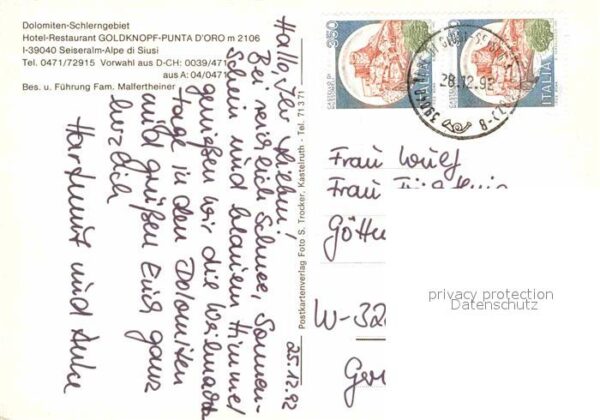 Dolomiten-Schlerngebiet
Hotel-Restaurant GOLDKNOPF-PUNTA D'ORO m 2106
I-39040 Seiseralm-Alpe di Siusi
Tel. 0471/72915 Vorwahl aus D-CH: 0039/471
aus A: 04/0471
Bes. u. Führung Fam. Malfertheiner
Hallo, Ihr Lieben!
Bei reichlich Schnee, Sonnen-
schein und blauem Himmel
genießen wir die Weihnachts
tage in den Dolomiten
und grüßen Euch ganz
herzlich
Hartmut und Anke
25.12.92
Postkartenverlag Foto S. Trocker, Kastelruth - Tel. 71371
350
350
ITALIA
28.12.92
Frau Wulf
Frau
Götte
W-32
Ger
privacy protection
Datenschutz